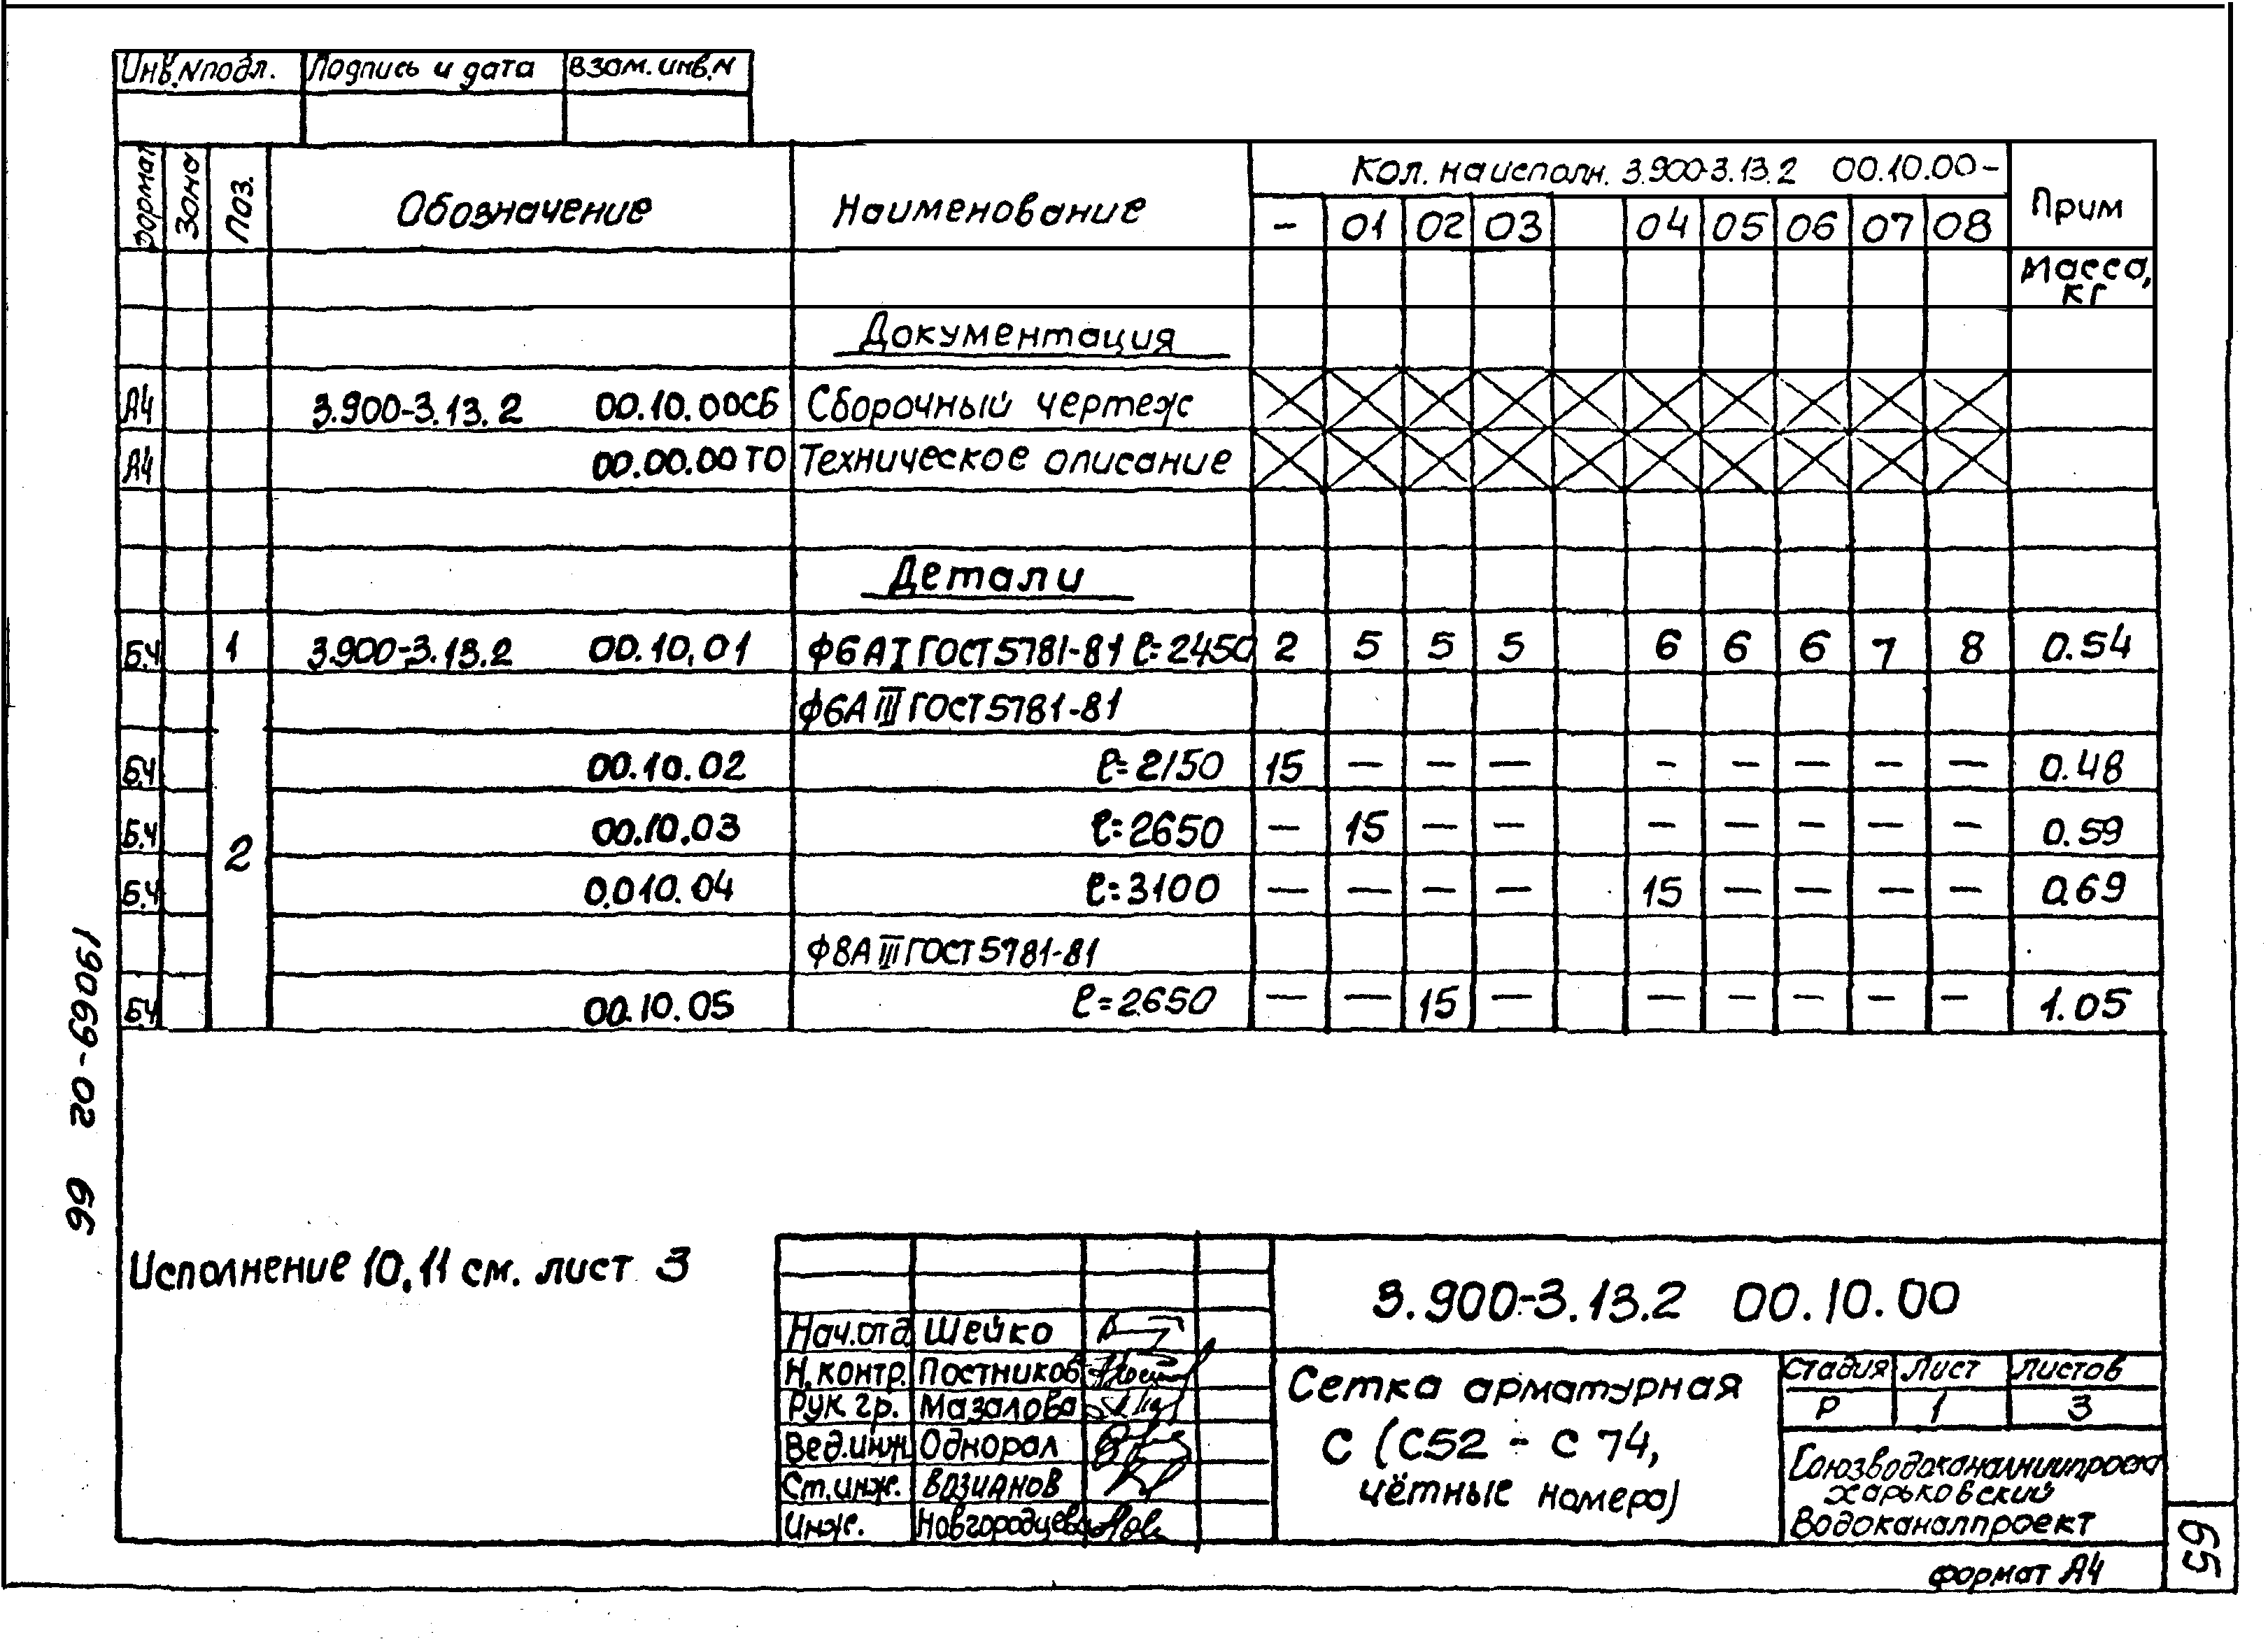 Инв.Nподл. Подпись и дата Взам.инв.N
Формат Зона Поз. Обозначение Наименование Кол. на исполн. 3.900-3.13.2 00.10.00- Прим
- 01 02 03 04 05 06 07 08
Масса, кг
Документация
А4 3.900-3.13.2 00.10.00СБ Сборочный чертеж
А4 00.00.00ТО Техническое описание
Детали
Б.Ч 1 3.900-3.13.2 00.10.01 ф6АI ГОСТ5781-81 ℓ=2450 2 5 5 5 6 6 6 7 8 0.54
ф6АIII ГОСТ5781-81
Б.Ч 00.10.02 ℓ=2150 15 — — — — — — — — 0.48
Б.Ч 2 00.10.03 ℓ=2650 — 15 — — — — — — — 0.59
Б.Ч 0.010.04 ℓ=3100 — — — — 15 — — — — 0.69
ф8АIII ГОСТ5781-81
БЧ 00.10.05 ℓ=2650 — — 15 — — — — — — 1.05
19069-02 66
Исполнение 10,11 см. лист 3
3.900-3.13.2 00.10.00
Нач.отд. Шейко
Н.контр. Постников
Рук гр. Мазалова
Вед.инж Однорал
Ст.инж. Возианов
Инж. Новгородцева
Сетка арматурная
С (С52 - С 74,
чётные номера)
Стадия Лист Листов
Р 1 3
Союзводоканалниипроект
Харьковский
Водоканалпроект
формат А4
65